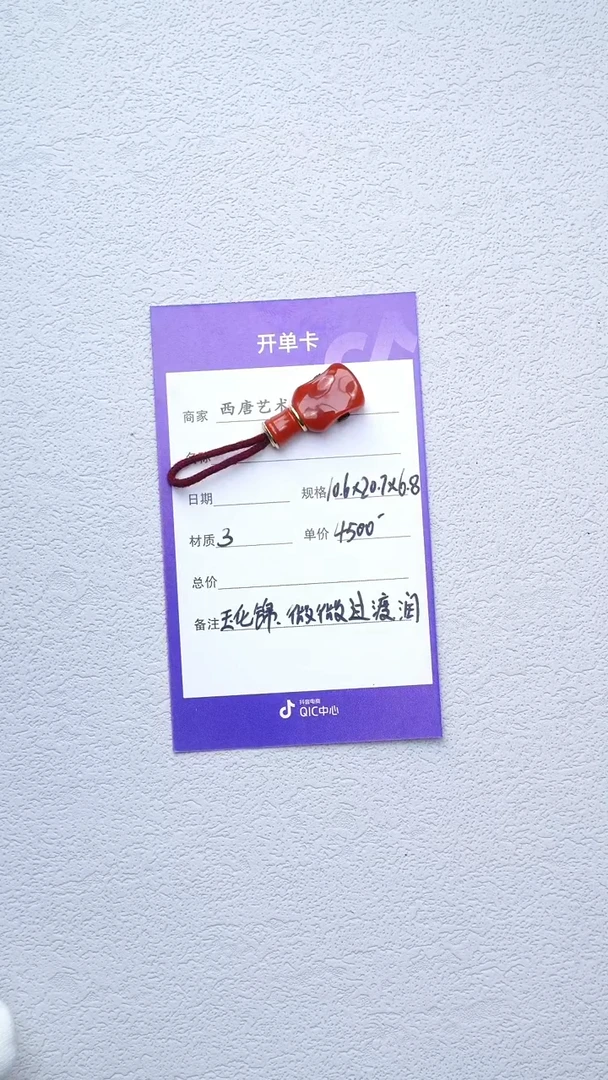 开单卡
商家 西唐艺术
名称
日期 规格10.6×20.7×6.8
材质3 单价 4500
总价
备注玉化锦、微微过渡润
抖音电商
QIC中心